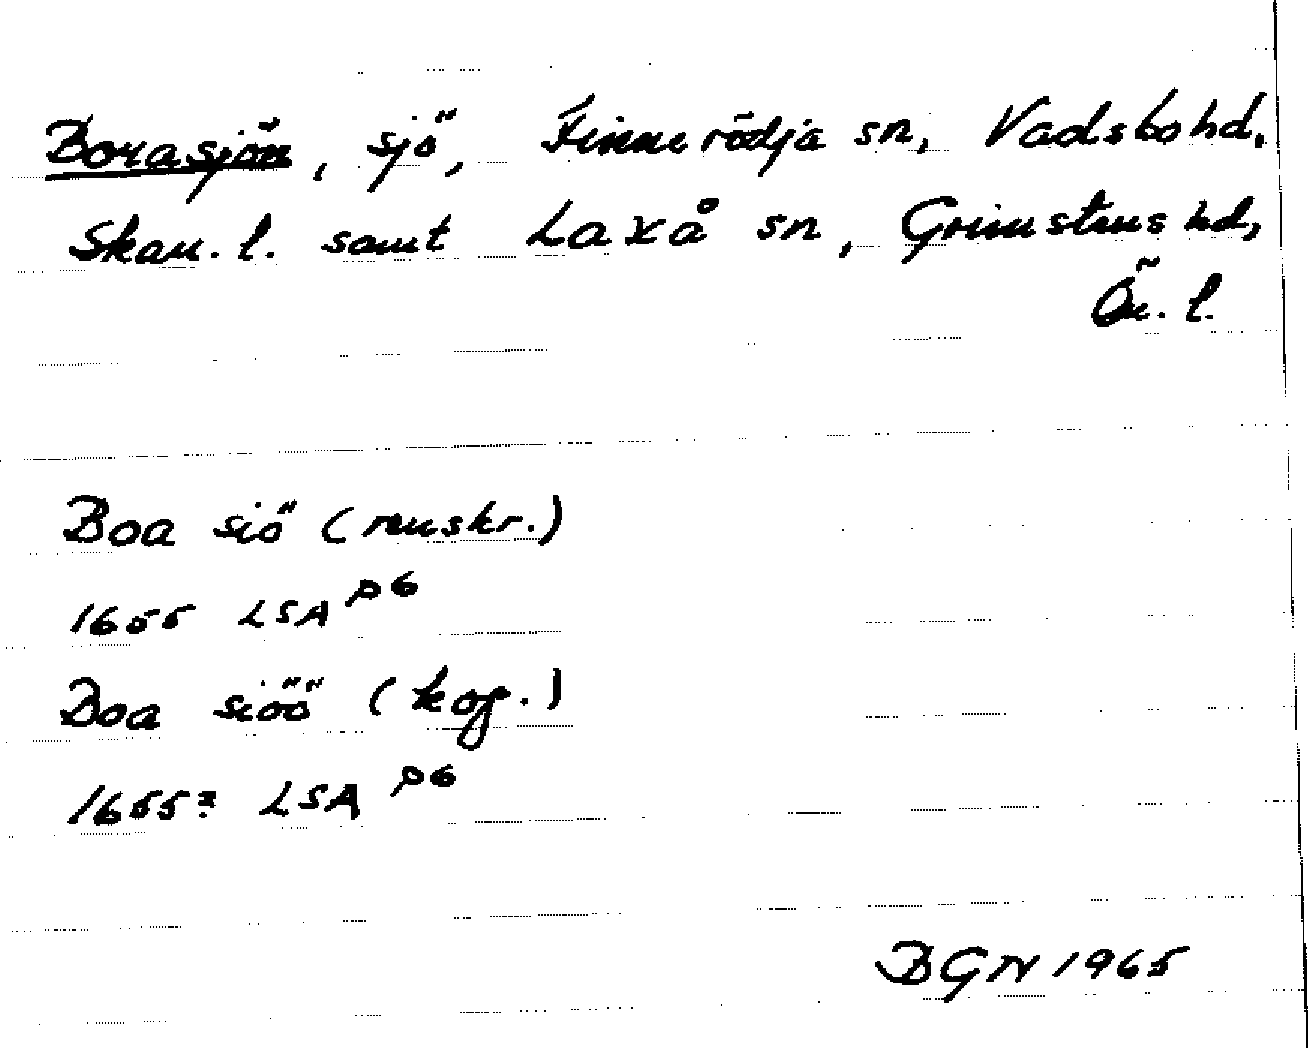 Borasjön, sjö, Finnerödja sn, Vadsbo hd,
Skar. l. samt Laxå sn, Grimstens hd,
Ör. l.
Boa siö (renskr.)
1655 LSA P6
Boa siöö (kop.)
1655? LSA P6
BGN 1965